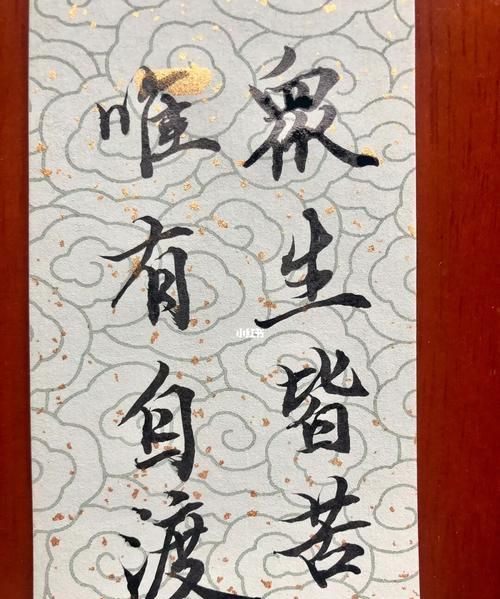 眾生皆苦
唯有自渡
小红书